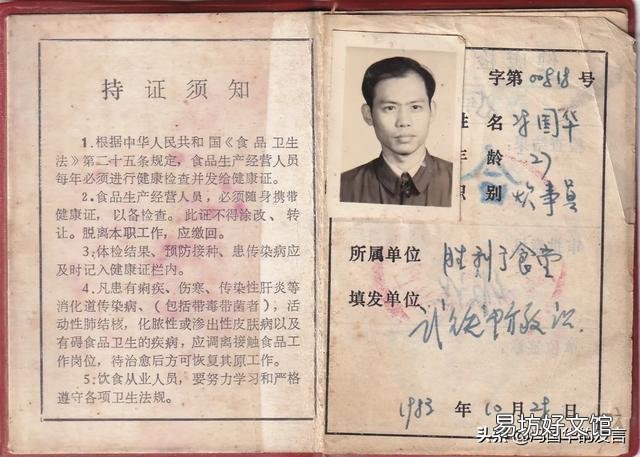 持证须知
1.根据中华人民共和国《食品卫生
法》第二十五条规定，食品生产经营人员
每年必须进行健康检查并发给健康证。
2.食品生产经营人员，必须随身携带
健康证，以备检查。此证不得涂改、转
让。脱离本职工作，应缴回。
3.体检结果、预防接种、患传染病应
及时记入健康证栏内。
4.凡患有痢疾、伤寒、传染性肝炎等
消化道传染病、（包括带毒带菌者），活
动性肺结核，化脓性或渗出性皮肤病以及
有碍食品卫生的疾病，应调离接触食品工
作岗位，待治愈后方可恢复其原工作。
5.饮食从业人员，要努力学习和严格
遵守各项卫生法规。
字第00818号
姓名 冯国华
年龄 27
职别 炊事员
所属单位 胜利食堂
填发单位
1983年10月29日
易坊好文馆
头条
的发言